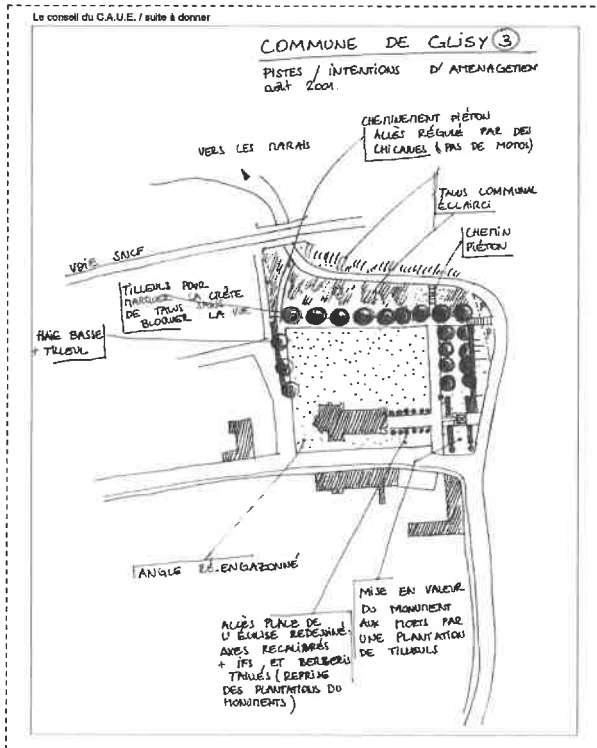 Le conseil du C.A.U.E. / suite à donner
COMMUNE DE GLISY 3
PISTES / INTENTIONS D'AMENAGEMEN
août 2001.
CHEMINEMENT PIÉTON
ACCÈS RÉGULÉ PAR DES
CHICANES (PAS DE MOTOS)
VERS LES MARAIS
TALUS COMMUNAL
ECLAIRCI
CHEMIN
PIÉTON
VOIE SNCF
TILLEULS POUR
MARQUER LA CRÊTE
DE TALUS SANS
BLOQUER LA VUE
HAIE BASSE
+ TILLEUL
ANGLE RÉ-ENGAZONNÉ
ACCÈS PLACE DE
L'ÉGLISE REDESSINÉ
AXES RECALIBRÉS
+ IFS ET BERBERIS
TAILLÉS (REPRISE
DES PLANTATIONS DU
MONUMENTS)
MISE EN VALEUR
DU MONUMENT
AUX MORTS PAR
UNE PLANTATION
DE TILLEULS